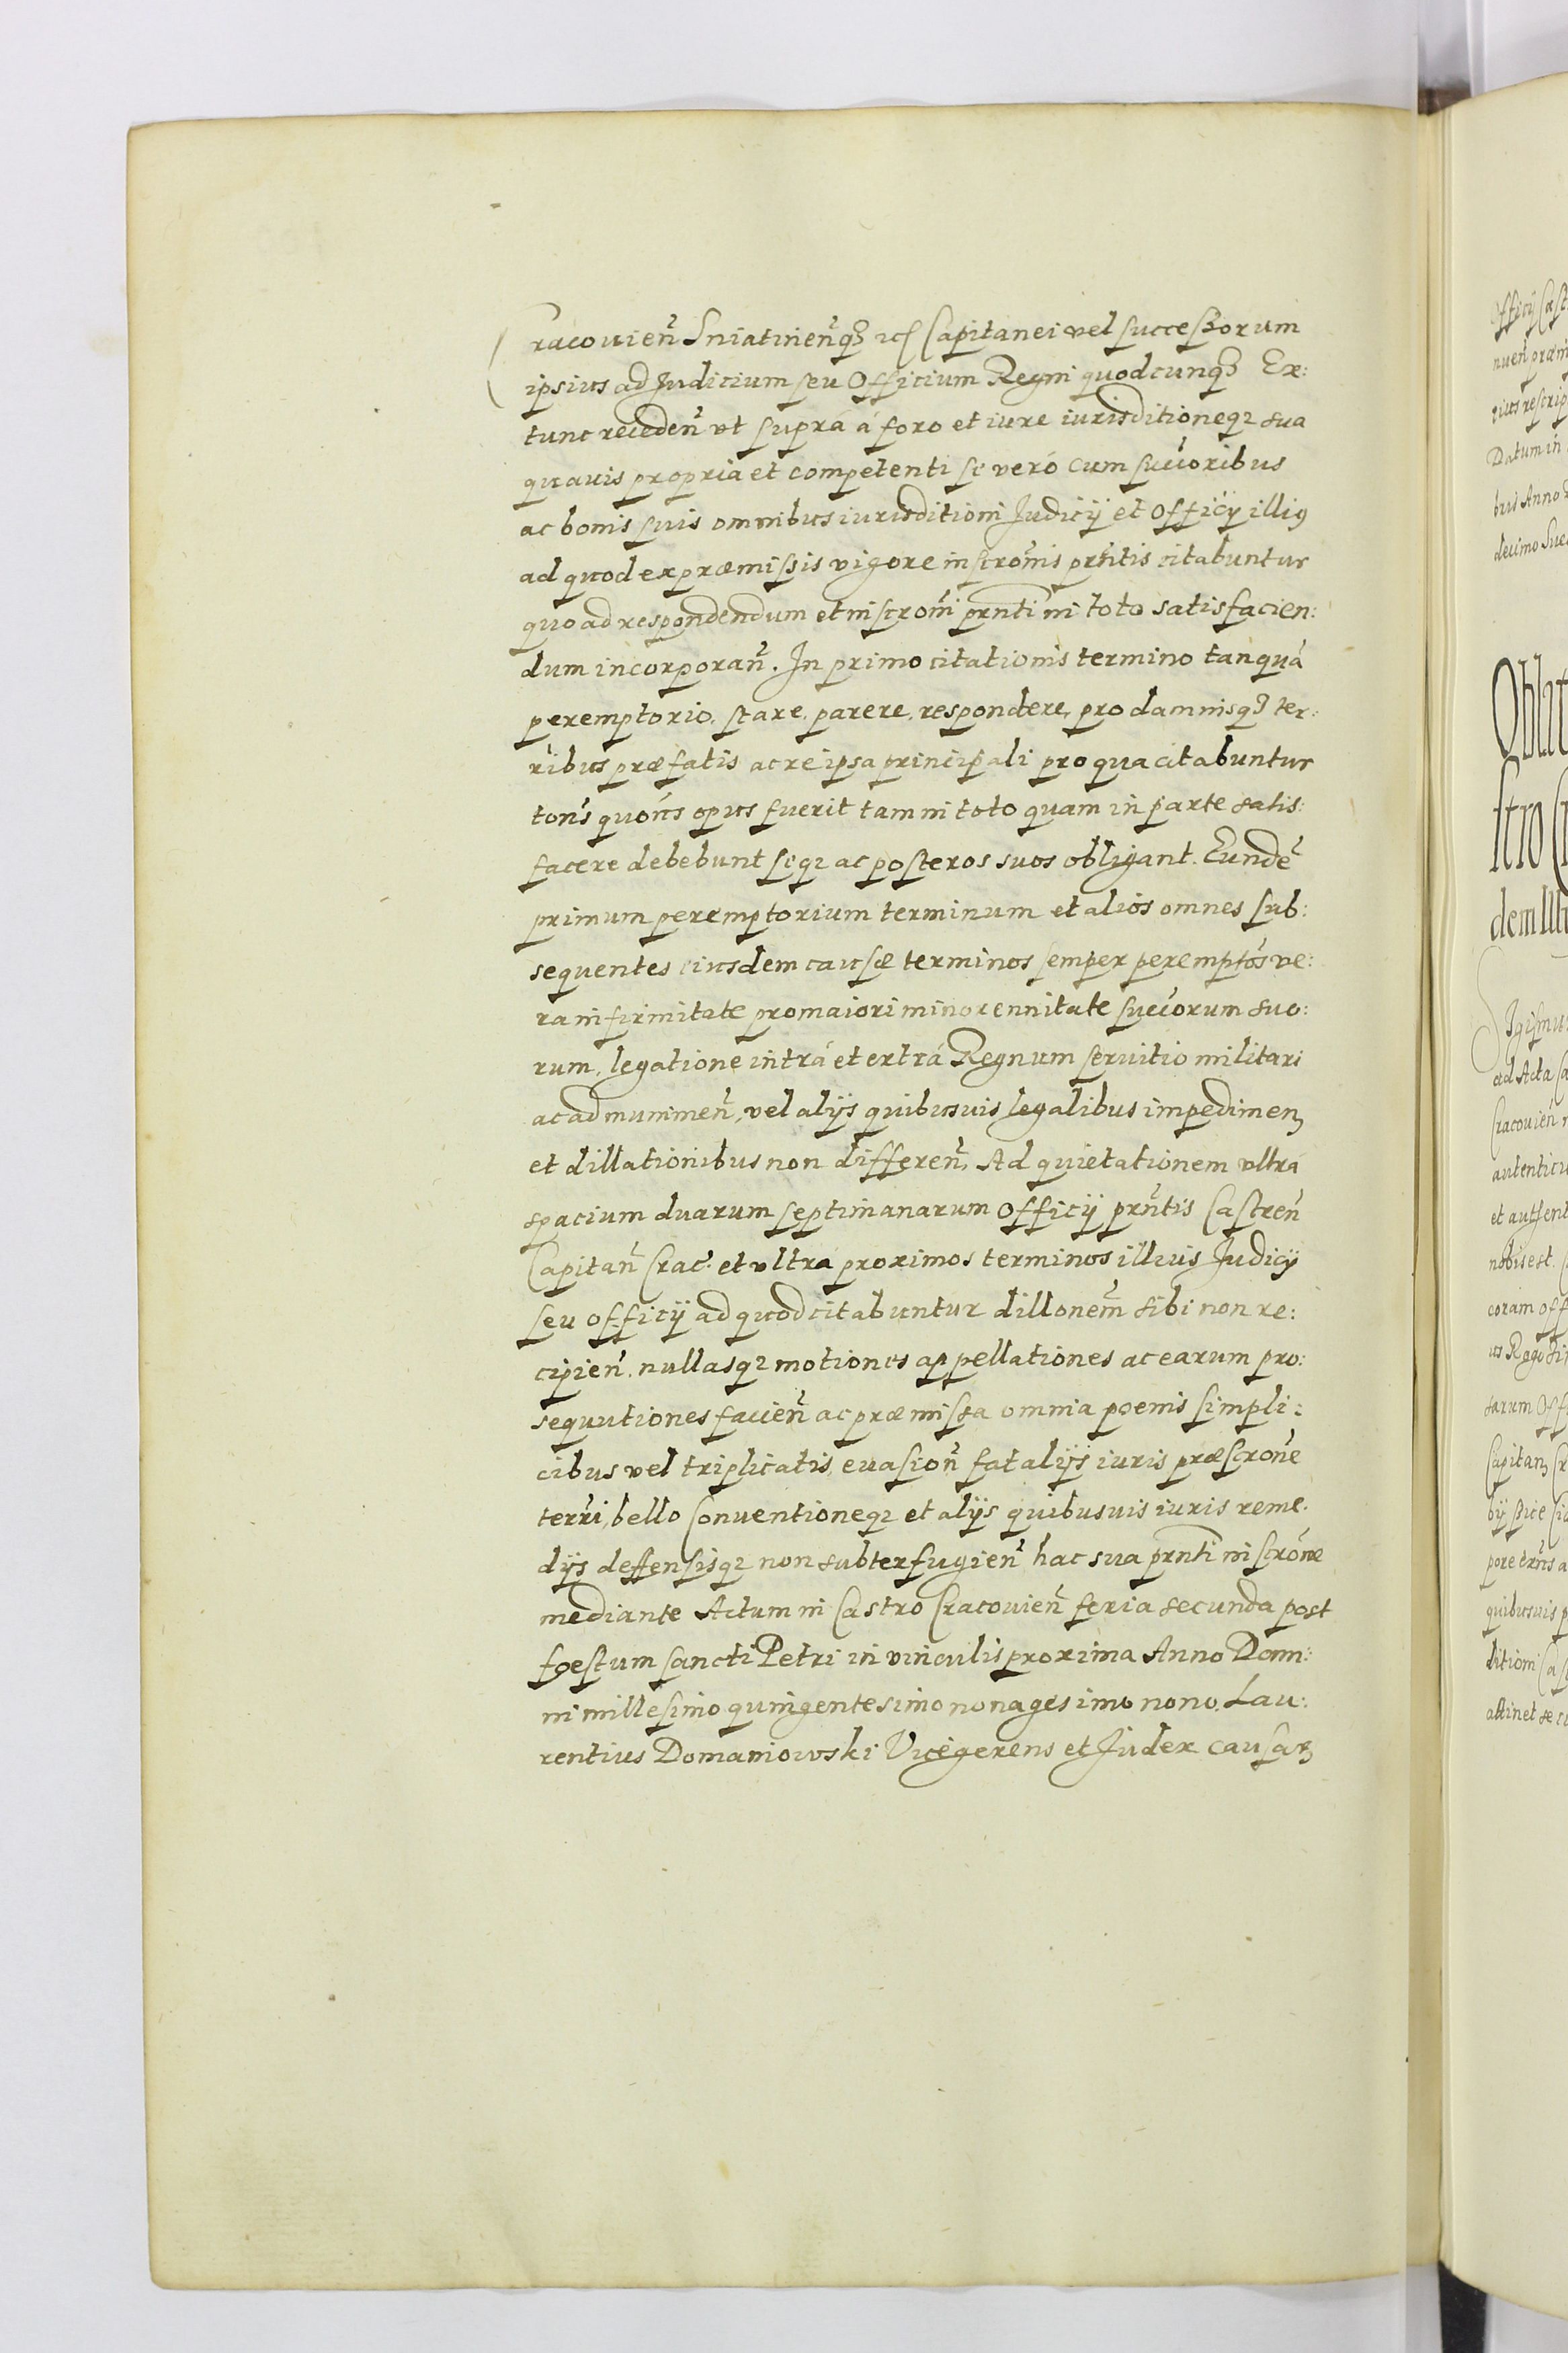 Cracouien̄ Sniatinen̄qꝫ ⁊cꝭ Capitanei vel successorum
ipsius ad Judicium seu Officium Regni quodcunqꝫ Ex:
tunc receden̄ vt suprá á foro et iure iurisditioneqꝫ sua
quauis propria et competenti se veró cum succ̄oribus
ac bonis suis omnibus iurisditioni Judicÿ et Officÿ illiꝰ
ad quod ex præmissis vigore inscrōnis prn̄tis citabuntur
quo ad respondendum et inscrōni prn̄ti in toto satisfacien:
dum incorporan̄. In primo citationis termino tanquā
peremptorio, stare, parere, respondere, pro damnisqꝫ ter:
ribus præfatis ac re ipsa principali pro qua citabuntur
tōns quōns opus fuerit tam in toto quam in parte satis:
facere debebunt seqꝫ ac posteros suos obligant. Eundē
primum peremptorium terminum et alios omnes sub:
sequentes eiusdem causæ terminos semper peremptōs ve:
ra infirmitate pro maiori minorennitate succ̄orum suo:
rum, legatione intrá et extrá Regnum seruitio militari
ac ad munimen̄, vel alÿs quibusuis legalibus impedimenꝫ
et dillationibus non differen̄, Ad quietationem vltrá
spacium duarum septimanarum Officÿ prn̄tis Castren̄
Capitan̄ Crac̄. et vltra proximos terminos illius Judicÿ
seu officÿ ad quod citabuntur dillonem̄ sibi non re:
cipien̄. nullasqꝫ motiones appellationes ac earum pro:
sequutiones facien̄ ac præmissa omnia poenis simpli:
cibus vel triplicatis, euasion̄ fatalÿs iuris præscrōne
terrī, bello Conuentioneqꝫ et alÿs quibusuis iuris reme:
dÿs deffensisqꝫ non subterfugien̄ hac sua prn̄ti inscrōne
mediante Actum in Castro Cracouien̄ feria secunda post
foestum sancti Petri in vinculis proxima Anno Domi:
ni millesimo quingentesimo nonagesimo nono. Lau:
rentius Domaniowski Vicegerens et Judex causaꝝ